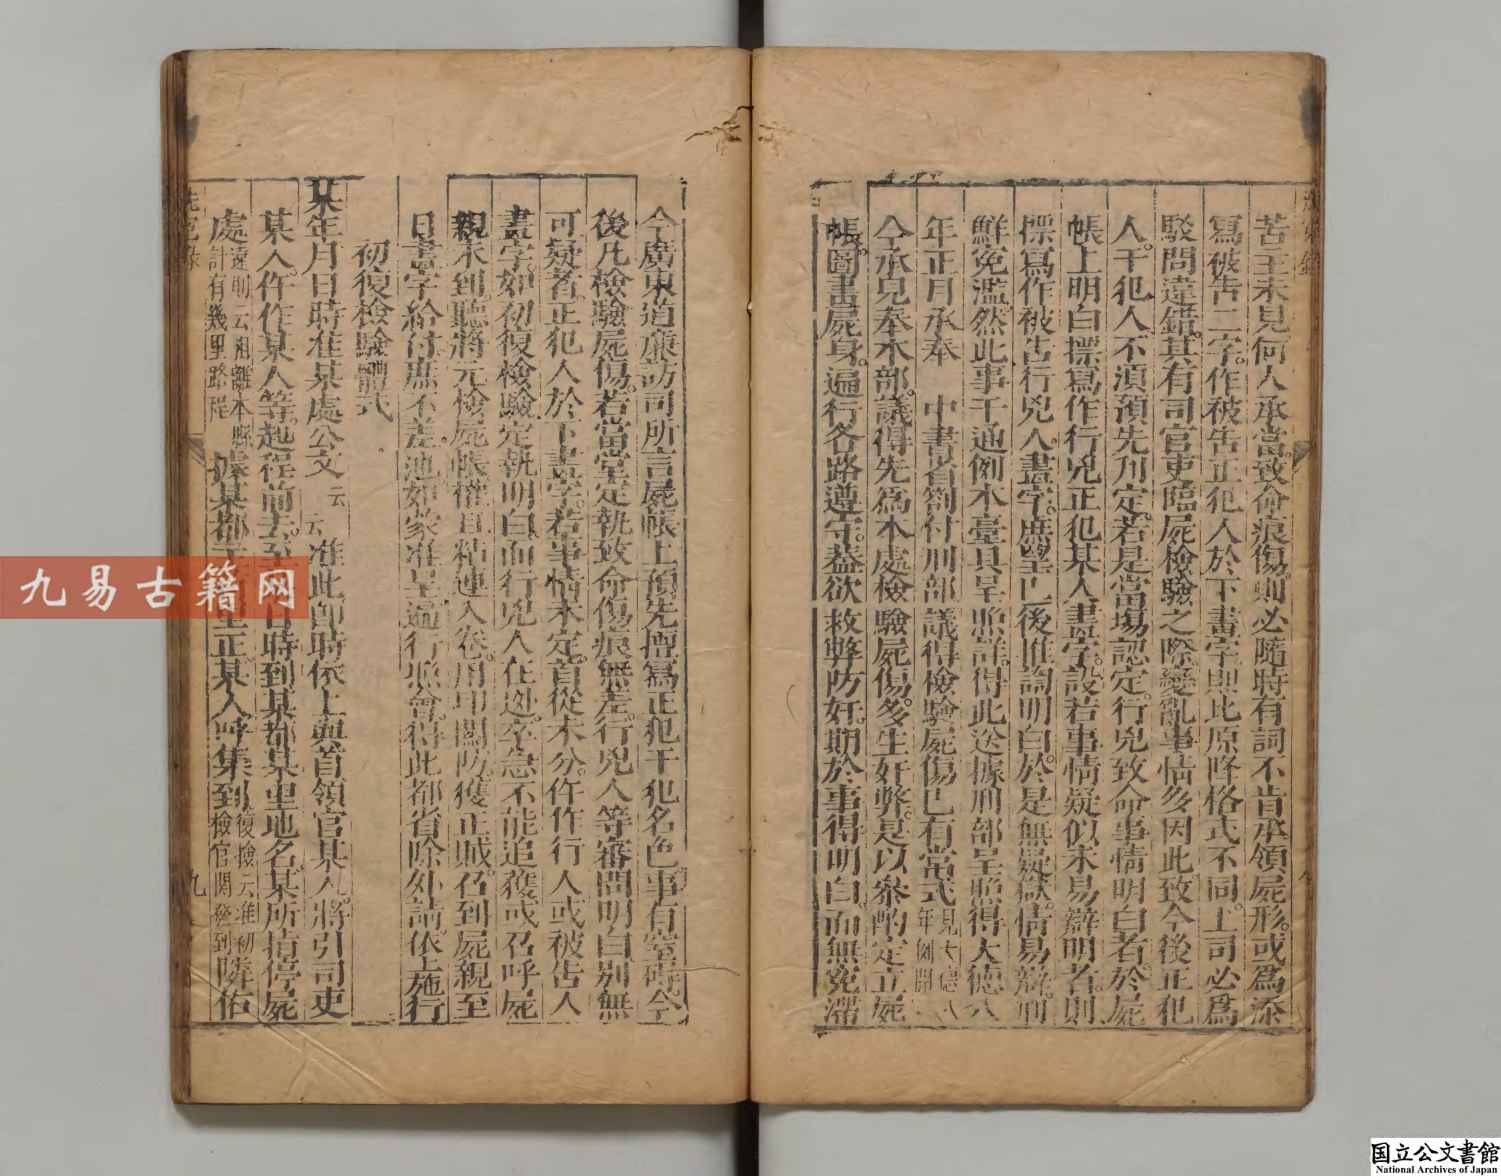 苦主未見何人承當致命痕傷則必隨時有詞不肯承領屍形或爲添
寫被告二字作被告正犯人於下畫字與此原降格式不同上司必爲
駁問違錯其有司官吏臨屍檢驗之際變亂事情多因此致今後正犯
人干犯人不湏預先刋定若是當場認定行兇致命事情明白者於屍
帳上明白摽寫作行兇正犯某人畫字設若事情疑似未易辯明者則
摽寫作被告行兇人畫字庶望已後推詢明白於是無疑獄情易辯刑
鮮冤濫然此事干通例本臺具呈照詳得此送據刑部呈照得大德八
年正月承奉 中書省劄付刑部議得檢驗屍傷已有常式
今承見奉本部議得先爲本處檢驗屍傷多生奸弊是以叅酌定立屍
帳圖畫屍身遍行各路遵守葢欲救弊防奸期於事得明白而無冤滯
今廣東道廉訪司所言屍帳上預先擅寫正犯干犯名色事有窒礙今
後凡檢驗屍傷若當堂定執致命傷痕無差行兇人等審問明白別無
可疑者正犯人於下畫字若事情未定首從未分仵作行人或被告人
畫字如初復檢驗定執明白而行兇人在逃卒急不能追獲或召呼屍
親未到聽將元檢屍帳權且粘連入卷用印關防獲正賊召到屍親至
日畫字給付庶不差池如蒙准呈遍行照會得此都省除外請依上施行
初復檢驗體式
某年月日時准某處公文云云准此卽時依上與首領官某人將引司吏
某人仵作某人等起程前去至 日時到某都某里地名某所指停屍
處遠則云相離本縣計有幾里路程據某都 里正某人呼集到復檢云准初檢官關發到隣佑
九
九易古籍网
国立公文書館
National Archives of Japan